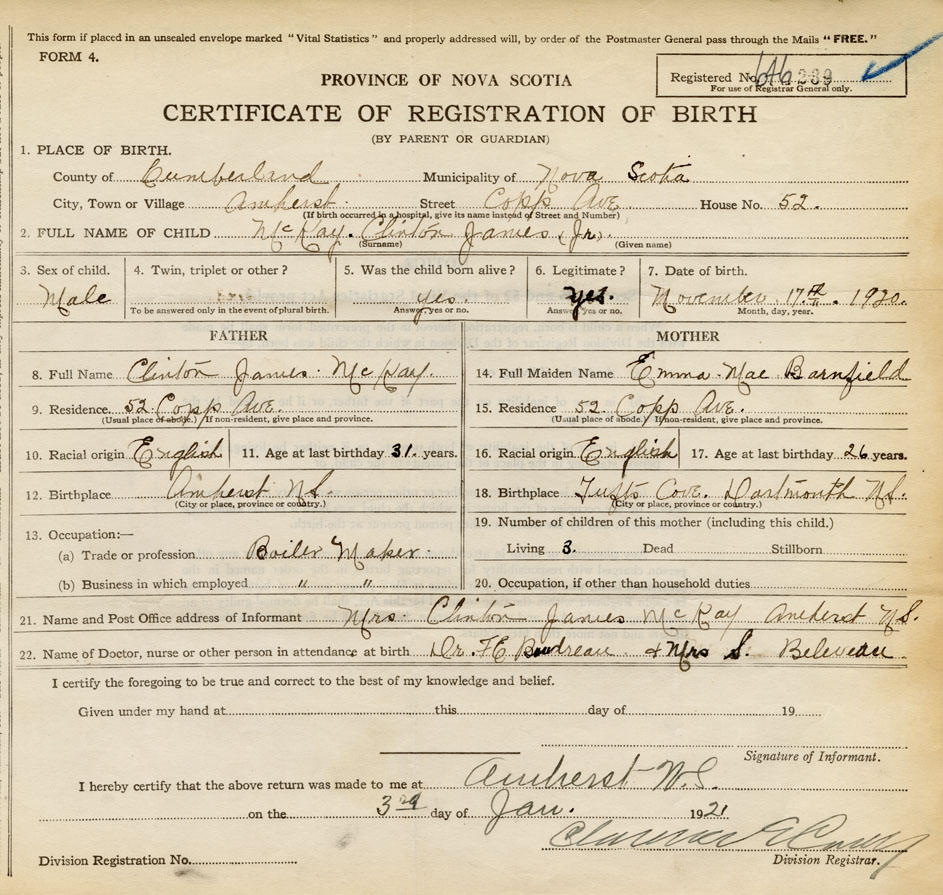 This form if placed in an unsealed envelope marked "Vital Statistics" and properly addressed will, by order of the Postmaster General pass through the Mails "FREE."
FORM 4.
Registered No. 239
For use of Registrar General only.
PROVINCE OF NOVA SCOTIA
CERTIFICATE OF REGISTRATION OF BIRTH
(BY PARENT OR GUARDIAN)
1. PLACE OF BIRTH.
County of Cumberland Municipality of Nova Scotia
City, Town or Village Amherst Street Copp Ave House No. 52.
(If birth occurred in a hospital, give its name instead of Street and Number)
2. FULL NAME OF CHILD McKay. Clinton James (Jr).
(Surname) (Given name)
3. Sex of child. 4. Twin, triplet or other? 5. Was the child born alive? 6. Legitimate? 7. Date of birth.
Male yes. yes. November 17th 1920.
To be answered only in the event of plural birth. Answer, yes or no. Answer yes or no. Month, day, year.
FATHER MOTHER
8. Full Name Clinton James McKay. 14. Full Maiden Name Emma Mae Barnfield
9. Residence. 52 Copp Ave. 15. Residence 52 Copp Ave.
(Usual place of abode.) If non-resident, give place and province. (Usual place of abode.) If non-resident, give place and province.
10. Racial origin English 11. Age at last birthday 31. years. 16. Racial origin English 17. Age at last birthday 26 years.
12. Birthplace Amherst N.S. 18. Birthplace Tufts Cove. Dartmouth N.S.
(City or place, province or country.) (City or place, province or country.)
13. Occupation:— 19. Number of children of this mother (including this child.)
(a) Trade or profession Boiler Maker. Living 3. Dead Stillborn
(b) Business in which employed " " 20. Occupation, if other than household duties
21. Name and Post Office address of Informant Mrs. Clinton James McKay Amherst N.S.
22. Name of Doctor, nurse or other person in attendance at birth Dr. F E Boudreau & Mrs S. Beliveau.
I certify the foregoing to be true and correct to the best of my knowledge and belief.
Given under my hand at this day of 19
Signature of Informant.
I hereby certify that the above return was made to me at Amherst N.S.
on the 3rd day of Jan. 1921
Division Registration No. Division Registrar.